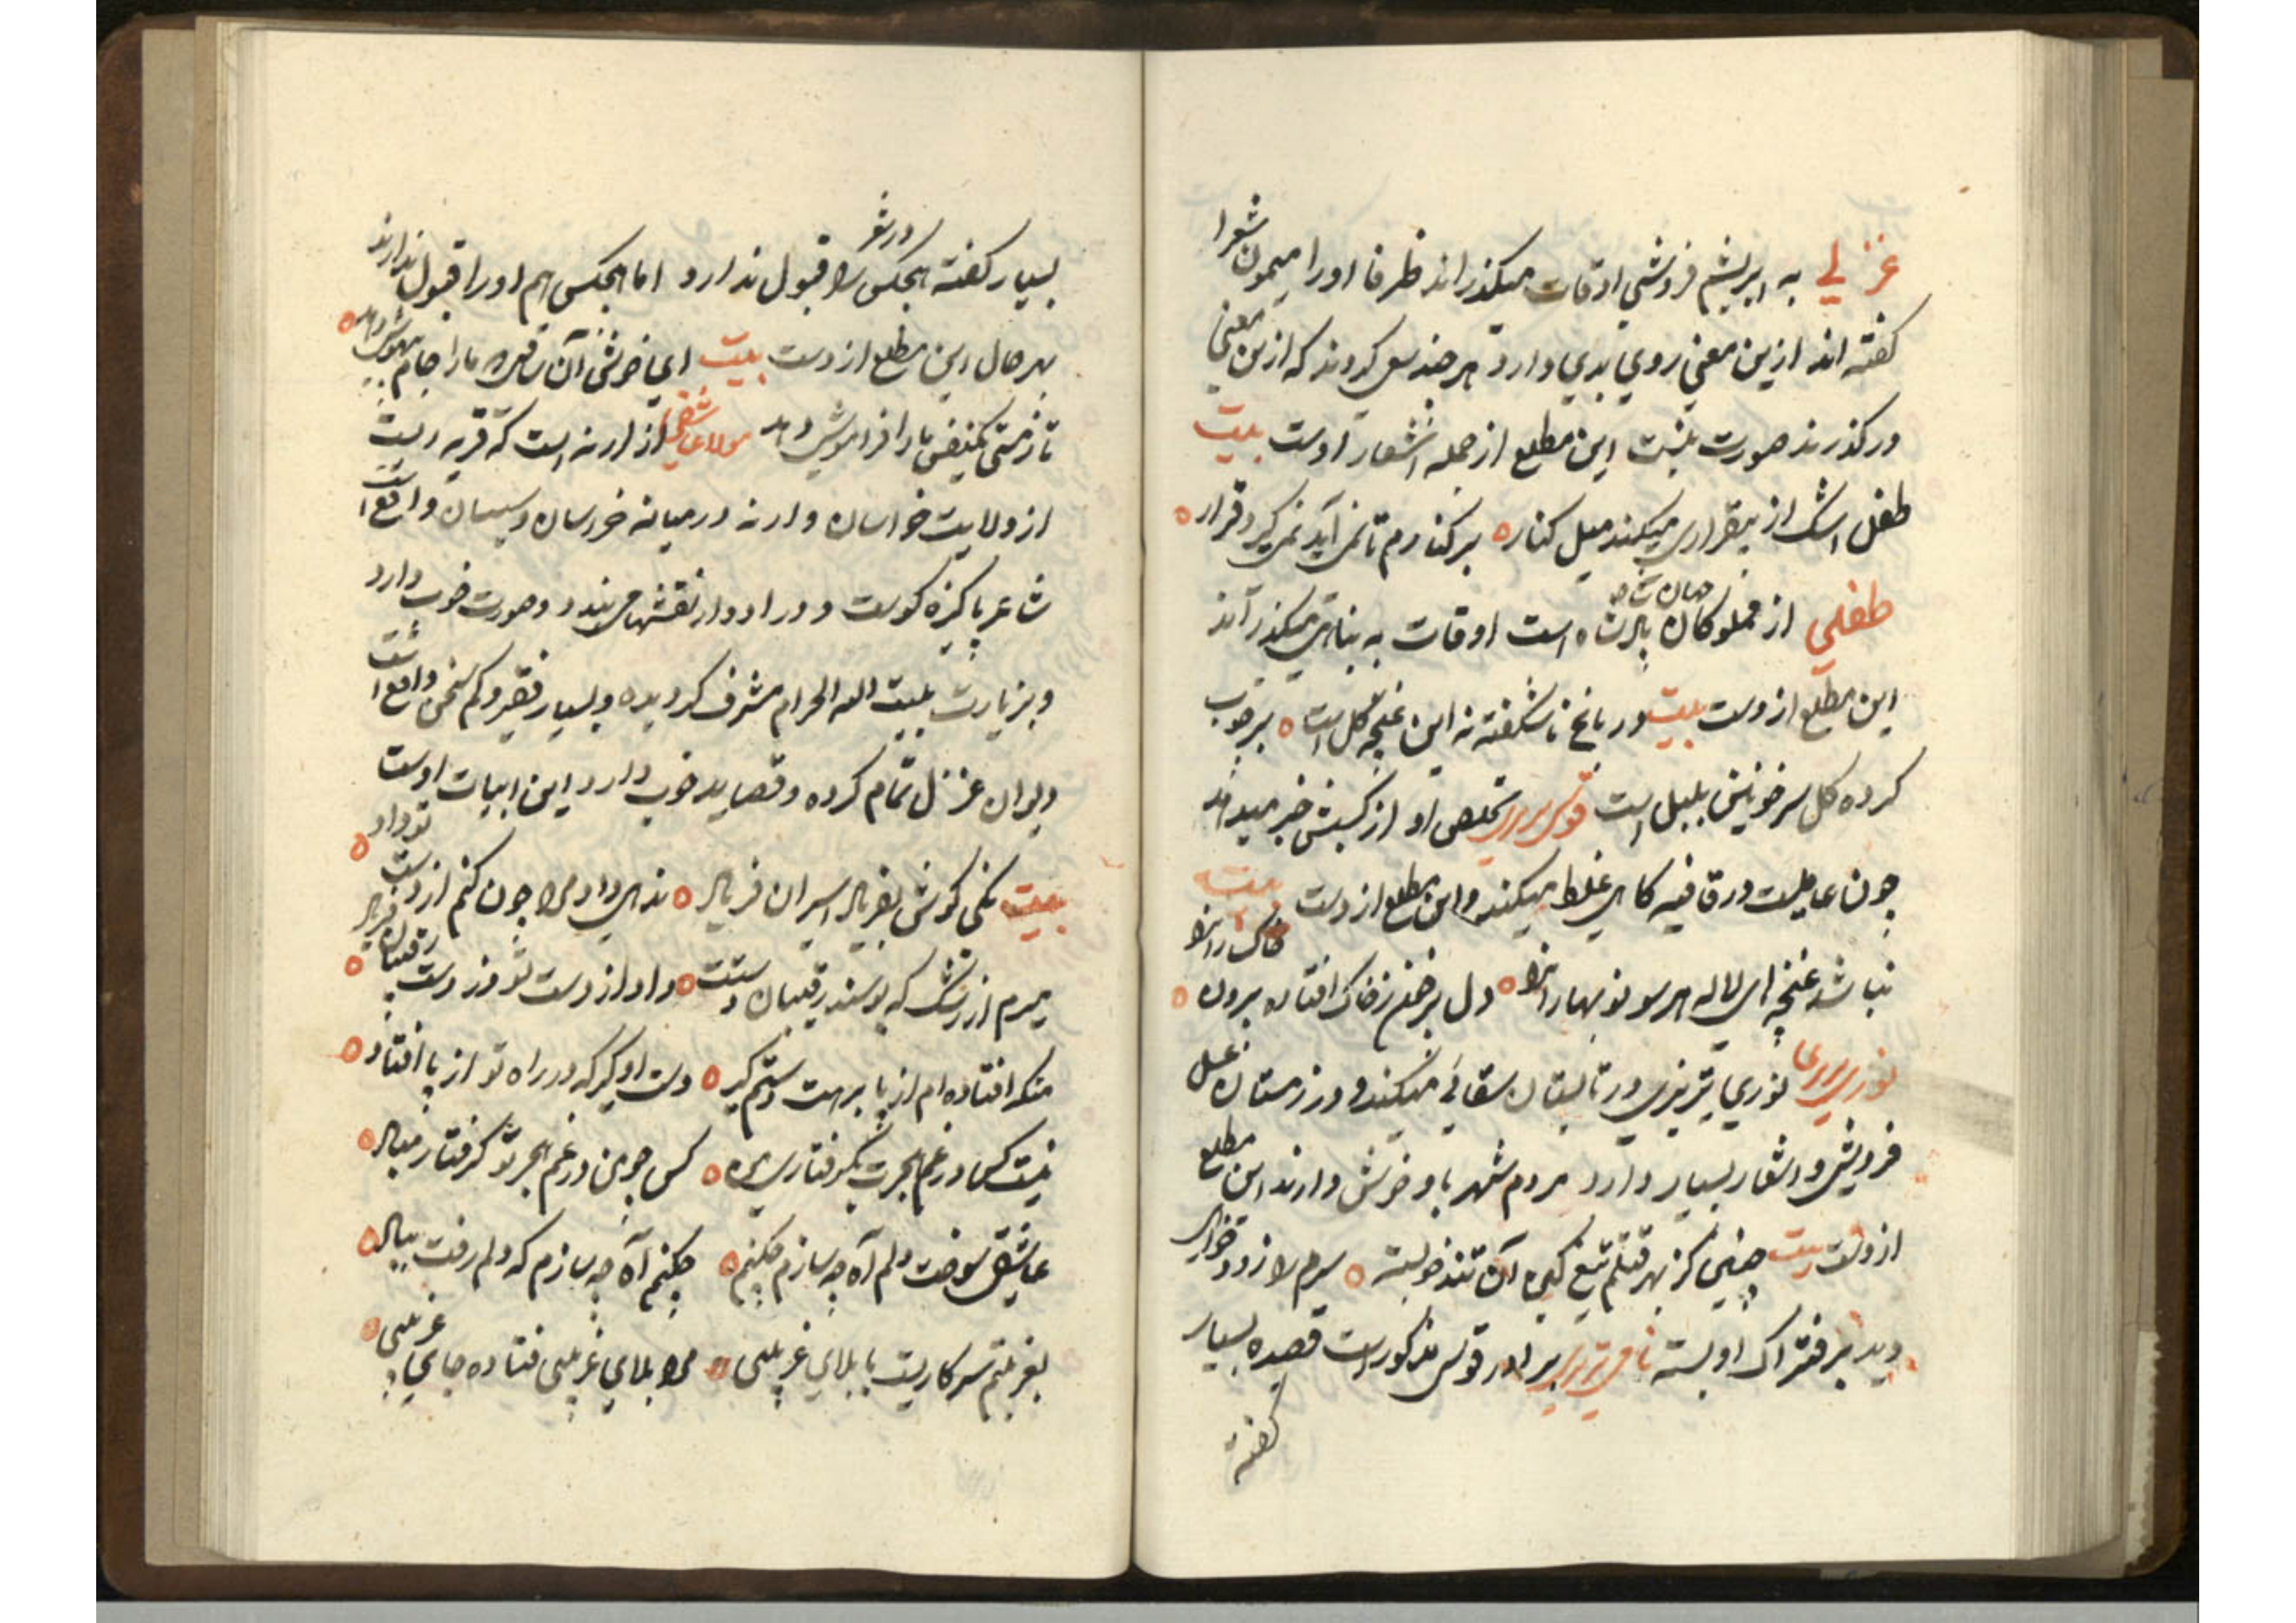 غزالي به ابریشم فروشی اوقات میکذراند ظرفا اورا میمون شعرا
کفته اند ازین معنی روي بدي دارد هر چند سعی کردند که ازین معنی
در کذرند صورت نبست این مطلع از جمله اشعار اوست بیت
طفل اشک از بیقراری میکند میل کنار بر کنارم تا نمی آید نمی کیرد قرار
طفلي از مملوکان جهان شاه پادشاه است اوقات به میکذراند
این مطلع ازوست بیت در باغ ناشکفته نه این غنچه کل است بر چوب
کرده کل سر خونین بلبل است قوسی تبریزی تخلص او از کسبش خبر میدهد
چون عامیست در قافیه کاهی غلط میکند و این مطلع ازوست بیت
نباشد غنچه ای لاله هر سو نوبهارانرا دل پر خون ز خاک افتاده برون خاکسارانرا
نوری تبریزی در تابستان سقائی میکند و در زمستان عسل
فروشی و اشعار بسیار دارد مردم شهر با او خوش دارند این مطلع
ازوست بیت چنین کز بهر قتلم تیغ کین آن تندخو بسته سرم را زود خواهی
دید بر فتراک او بسته برادر قوسی مذکور است قصیده بسیار
کفته
بسیار کفته هیچکس را در شعر قبول ندارد اما هیچکس هم اورا قبول ندارند
بهر حال این مطلع ازوست بیت اي خوش آن ساقی که مارا جام بیهوشی دهد
تا ز مستی یکنفس مارا فراموشی دهد مولانا از ارنه است که قریه ایست
از ولایت خراسان و ارنه در میانه خراسان و سیستان واقع است
شاعر پاکیزه کوست و در ادوار نقشها می بندد و صورت خوب دارد
و بزیارت بیت الله الحرام مشرف کردیده و بسیار فقیر و کم سخن واقع است
دیوان غزل تمام کرده و قصاید خوب دارد این ابیات اوست
بیت نکنی کوش بفریاد اسیران فریاد ندهی داد مرا چون کنم از دست تو داد
میرم از رشک که بوسند رقیبان دستت داد از دست تو وز دست رقیبان فریاد
منکه افتاده ام از پا بر هت دستم کیر دست او کیر که در راه تو از پا افتاد
نیست کس در غم هجرت بکرفتاری من کس چو من در غم هجر تو کرفتار مباد
عاشقی سوخت دلم آه چه سازم چکنم چکنم آه چه سازم که دلم رفت بباد
بغربتم سر کاریست با بلاي غریبی مرا بلاي غریبی فتاده جاي غریبی